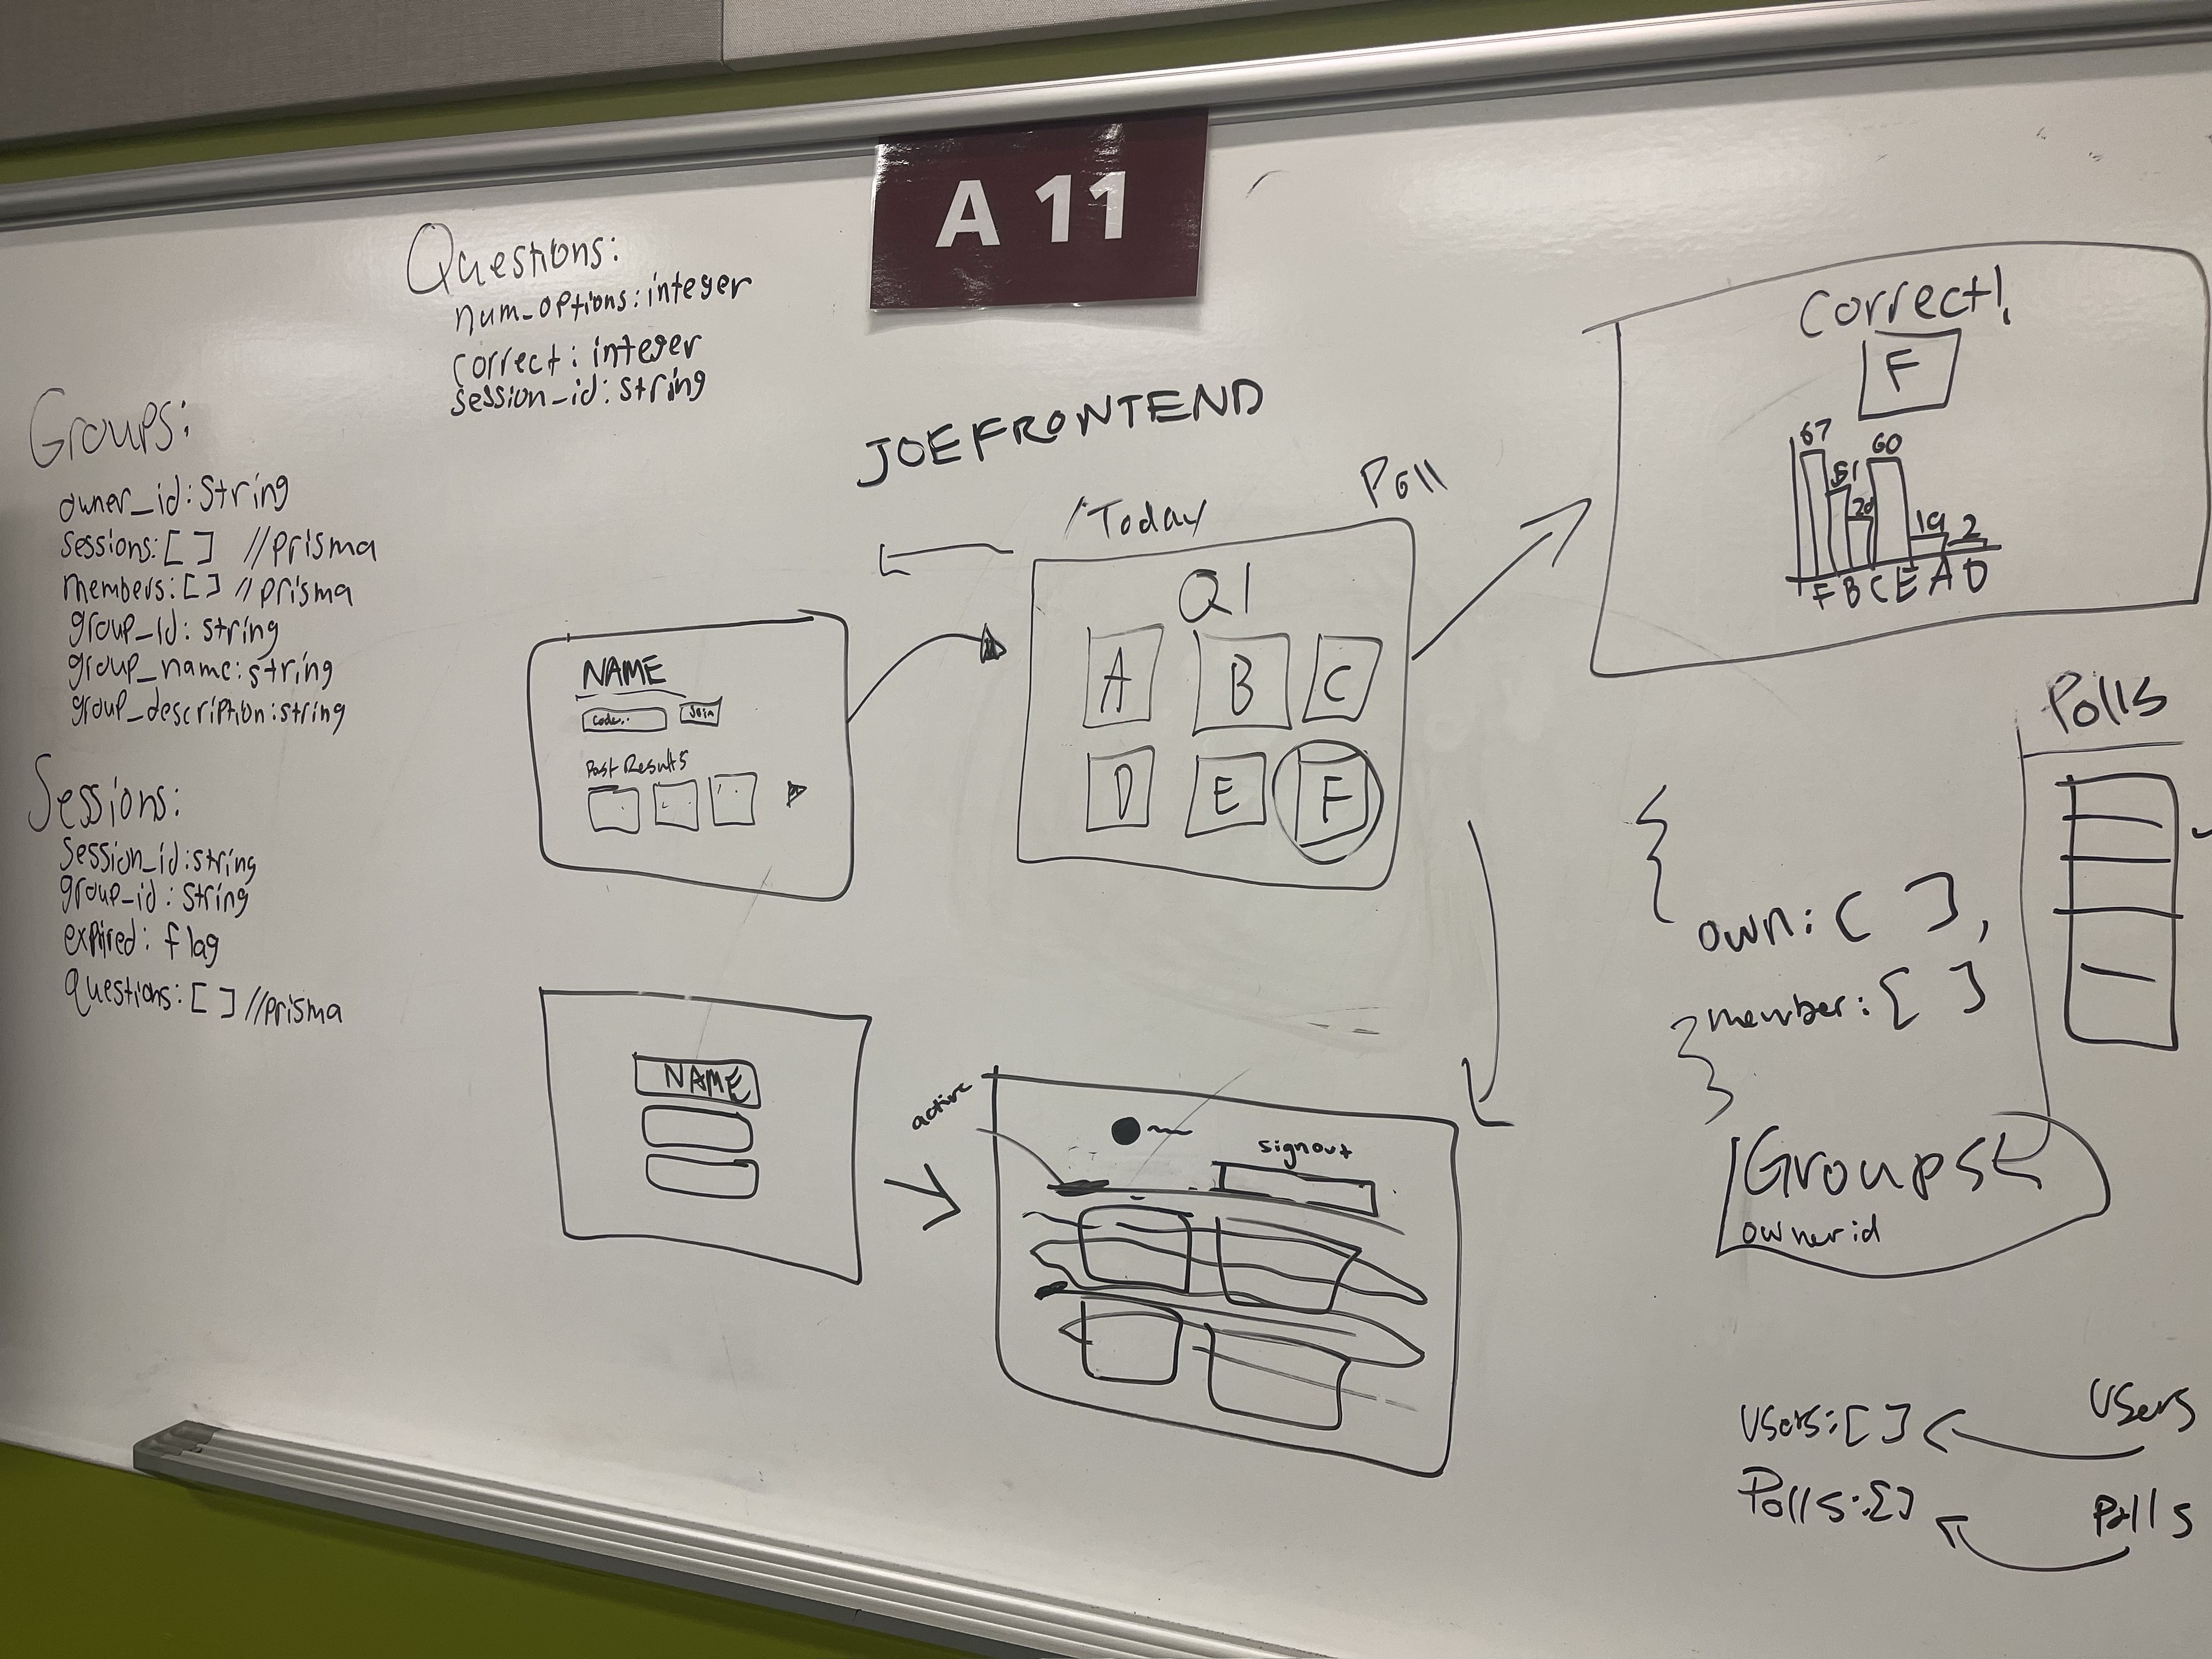 A 11
Questions:
num_options: integer
correct: integer
session_id: string
Groups:
owner_id: String
sessions: [ ] //prisma
members: [ ] //prisma
group_id: string
group_name: string
group_description: string
Sessions:
session_id: string
group_id: string
expired: flag
questions: [ ] //prisma
JOEFRONTEND
/Today
Poll
NAME
Code..
Join
Past Results
Q1
A B C
D E F
Correct!
F
67 51 60 2
F B C E A D
NAME
active
signout
Polls
{
own: [ ],
member: [ ]
}
Groups
ownerid
Users: [ ]
Users
Polls: [ ]
Polls